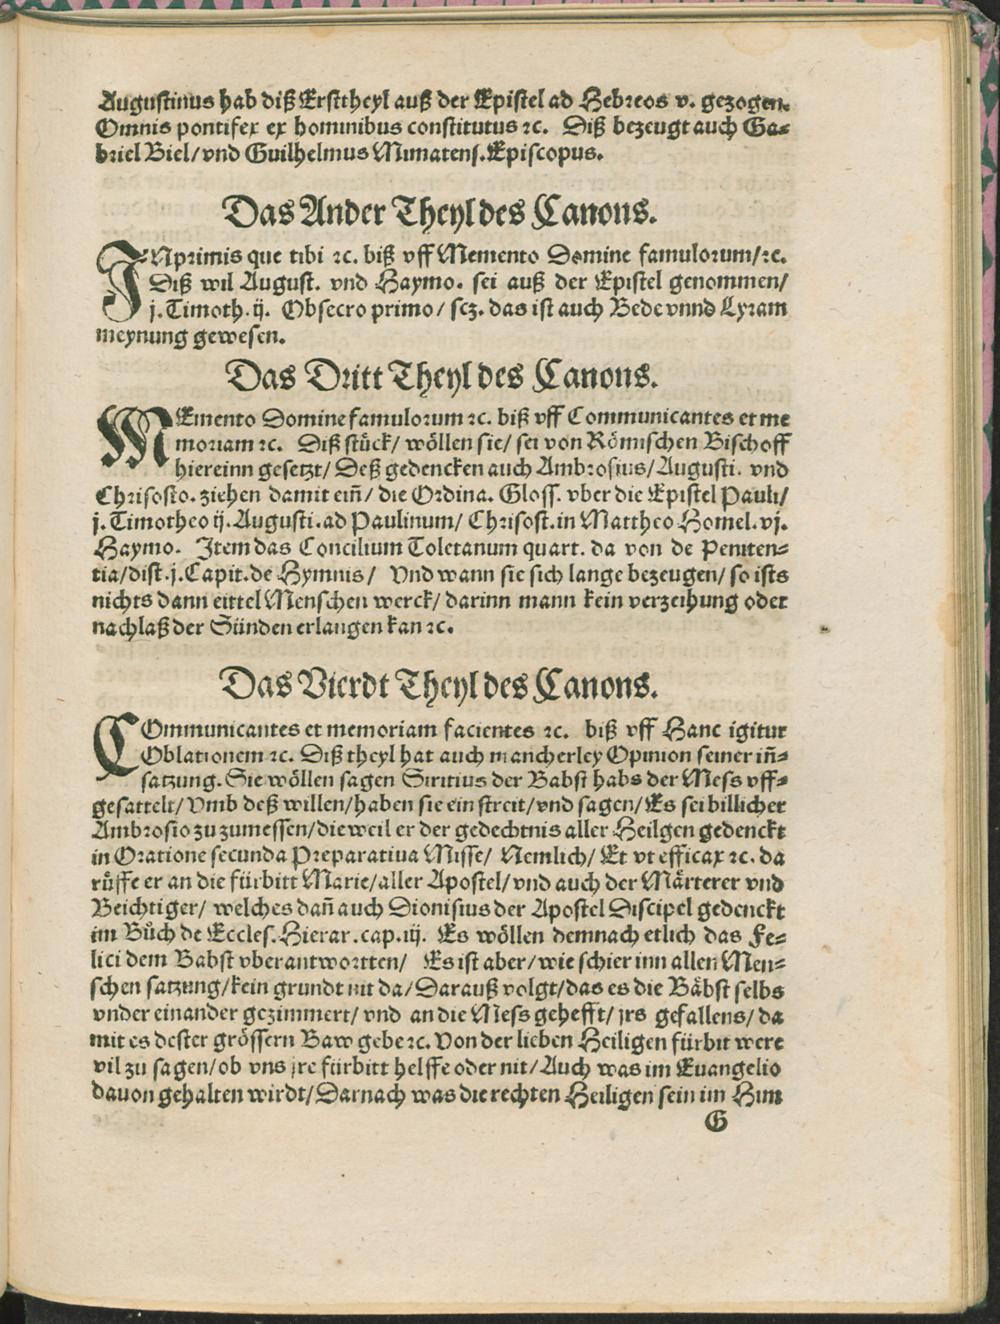 Augustinus hab diß Ersttheyl auß der Epistel ad Hebreos v. gezogen.
Omnis pontifex ex hominibus constitutus ꝛc. Diß bezeugt auch Ga⸗
briel Biel/ vnd Guilhelmus Mimatens. Episcopus.
Das Ander Theyl des Canons.
INprimis que tibi ꝛc. biß vff Memento Domine famulorum/ ꝛc.
Diß wil August. vnd Haymo. sei auß der Epistel genommen/
j. Timoth. ij. Obsecro primo/ scz. das ist auch Bede vnnd Lyram
meynung gewesen.
Das Dritt Theyl des Canons.
MEmento Domine famulorum ꝛc. biß vff Communicantes et me
moriam ꝛc. Diß stück/ wöllen sie/ sei von Römischen Bischoff
hiereinn gesetzt/ Deß gedencken auch Ambrosius/ Augusti. vnd
Chrisosto. ziehen damit eiñ/ die Ordina. Gloss. vber die Epistel Pauli/
j. Timotheo ij. Augusti. ad Paulinum/ Chrisost. in Mattheo Homel. vj.
Haymo. Item das Concilium Toletanum quart. da von de Peniten⸗
tia/ dist. j. Capit. de Hymnis/ Vnd wann sie sich lange bezeugen/ so ists
nichts dann eittel Menschen werck/ darinn mann kein verzeihung oder
nachlaß der Sünden erlangen kan ꝛc.
Das Vierdt Theyl des Canons.
COmmunicantes et memoriam facientes ꝛc. biß vff Hanc igitur
Oblationem ꝛc. Diß theyl hat auch mancherley Opinion seiner iñ⸗
satzung. Sie wöllen sagen Siritius der Babst habs der Mess vff⸗
gesattelt/ Vmb deß willen/ haben sie ein streit/ vnd sagen/ Es sei billicher
Ambrosio zu zumessen/ die weil er der gedechtnis aller Heilgen gedenckt
in Oratione secunda Preparatiua Misse/ Nemlich/ Et vt efficax ꝛc. da
rüffe er an die fürbitt Marie/ aller Apostel/ vnd auch der Märterer vnd
Beichtiger/ welches dañ auch Dionisius der Apostel Discipel gedenckt
im Bůch de Eccles. Hierar. cap. iij. Es wöllen demnach etlich das Fe⸗
lici dem Babst vberantwortten/ Es ist aber/ wie schier inn allen Men⸗
schen satzung/ kein grundt nit da/ Darauß volgt/ das es die Bäbst selbs
vnder einander gezimmert/ vnd an die Mess gehefft/ jrs gefallens/ da
mit es dester grössern Baw gebe ꝛc. Von der lieben Heiligen fürbit were
vil zu sagen/ ob vns jre fürbitt helffe oder nit/ Auch was im Euangelio
dauon gehalten wirdt/ Darnach was die rechten Heiligen sein im Him
G